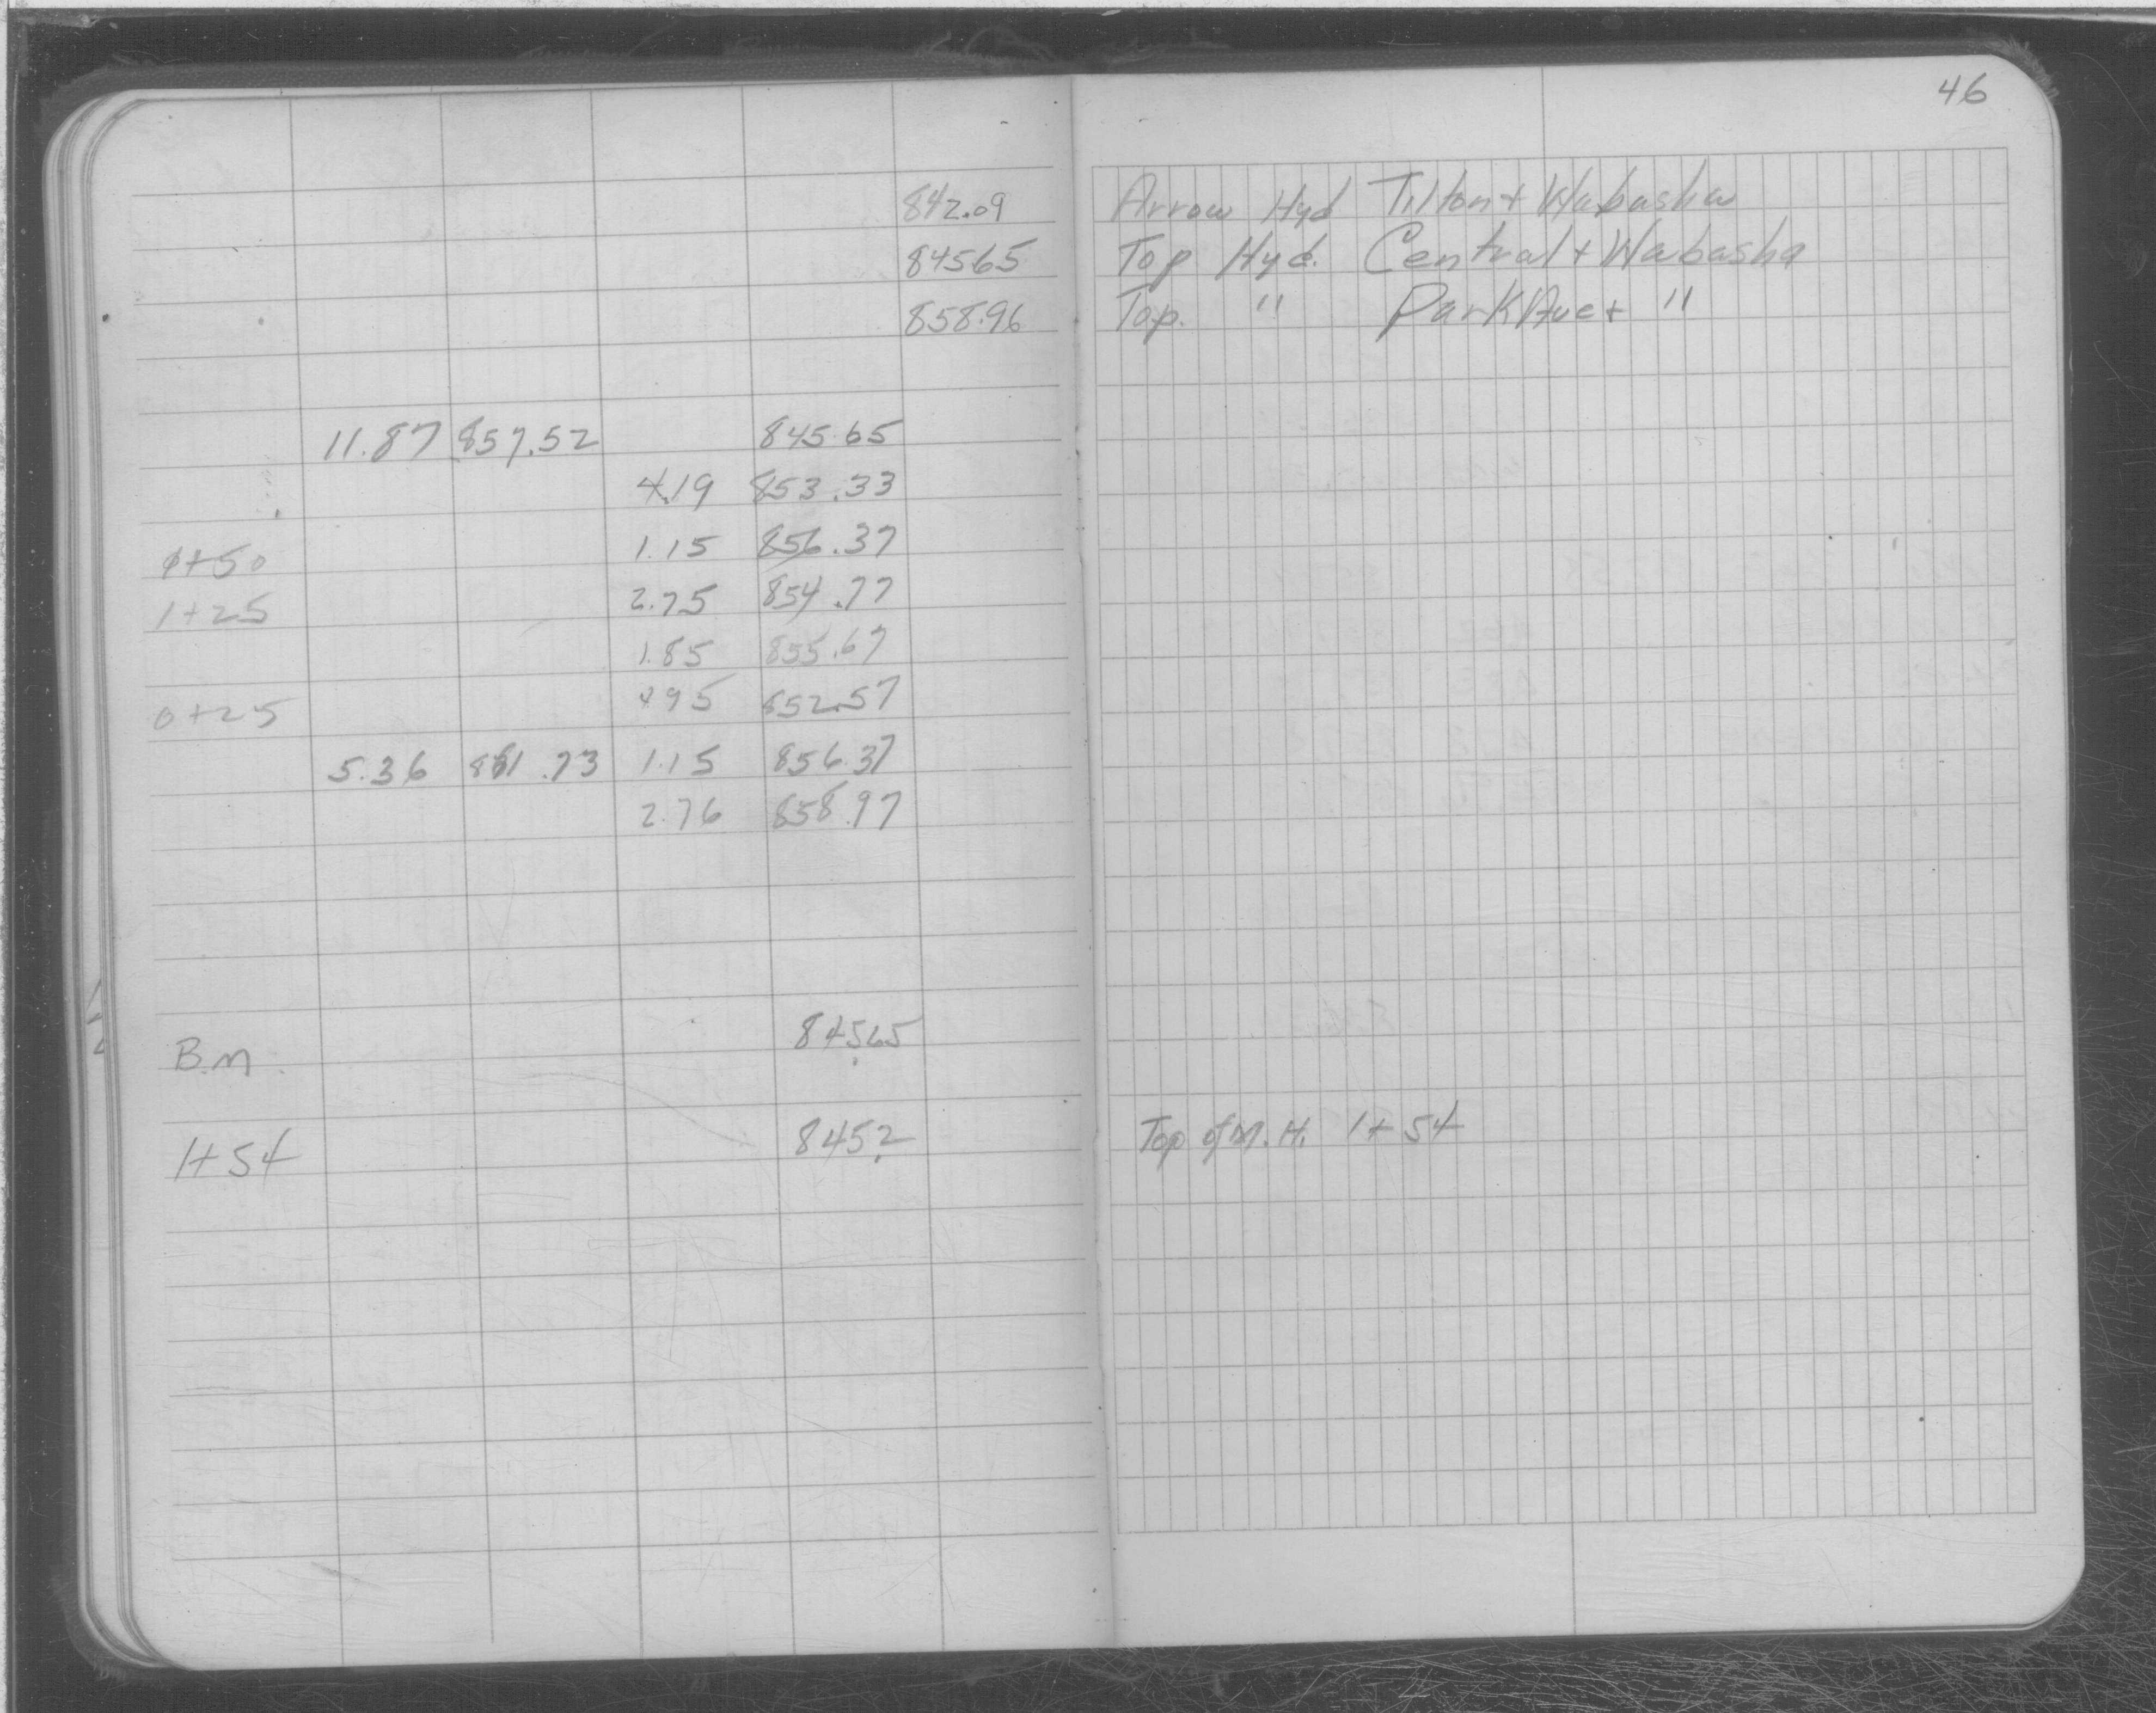 46
842.09 Arrow Hyd Tilton + Wabasha
84565 Top Hyd. Central + Wabasha
858.96 Top. " Park Ave + "
11.87 857.52 845.65
4.19 853.33
0+50 1.15 856.37
1+25 2.75 854.77
1.85 855.67
0+25 495 852.57
5.36 861.73 1.15 856.37
2.76 858.97
B.M. 84565
1+54 845.2 Top of M.H. 1+54